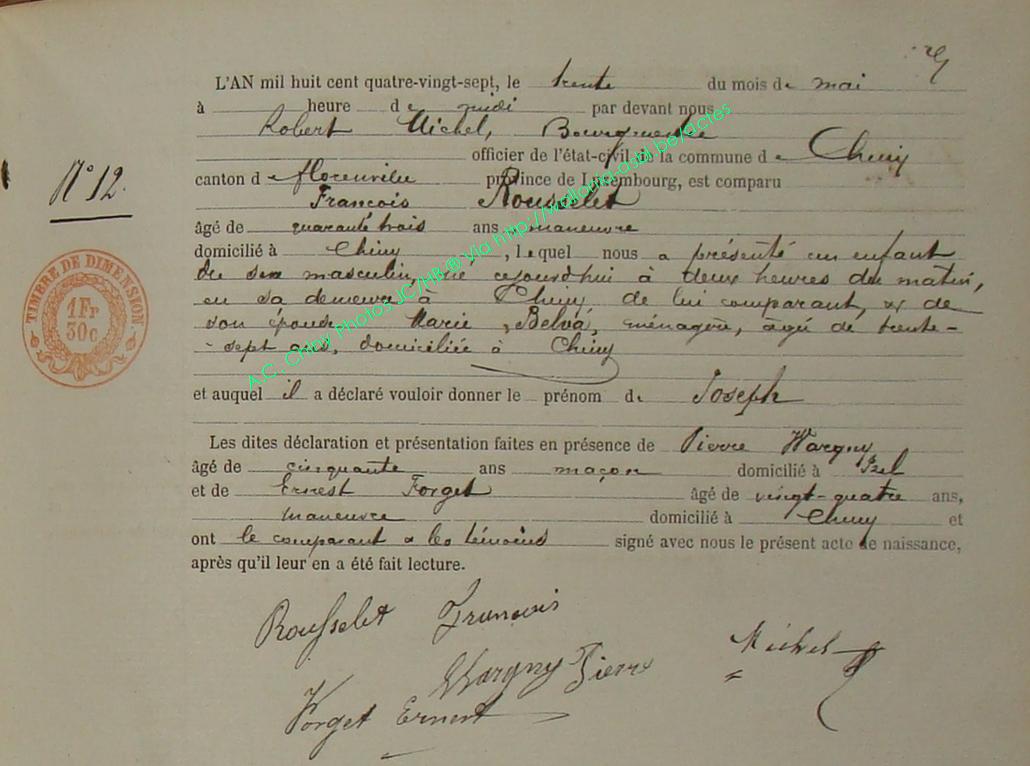 L'AN mil huit cent quatre-vingt-sept, le trente du mois de mai
à heure de midi par devant nous
Robert Michel, Bourgmestre
officier de l'état-civil de la commune de Chiny
N° 12.
canton de florenville province de Luxembourg, est comparu
François Rousselet
âgé de quarante trois ans maneuvre
domicilié à Chiny, lequel nous a présenté un enfant
du sexe masculin, né cejourd'hui à deux heures du matin,
en sa demeure à Chiny de lui comparant, & de
son épouse Marie Belvá, ménagère, âgée de trente-
sept ans, domiciliée à Chiny
et auquel il a déclaré vouloir donner le prénom de Joseph
Les dites déclaration et présentation faites en présence de Pierre Wargny
âgé de cinquante ans maçon domicilié à Izel
et de Ernest Forget âgé de vingt-quatre ans,
maneuvre domicilié à Chiny et
ont le comparant & les témoins signé avec nous le présent acte de naissance,
après qu'il leur en a été fait lecture.
Rousselet François
Michel
Wargny Pierre
Forget Ernest
TIMBRE DE DIMENSION.
1Fr
30c
A.C. Chiny Photos JC/HB ® Via http://wallonia-asbl.be/actes